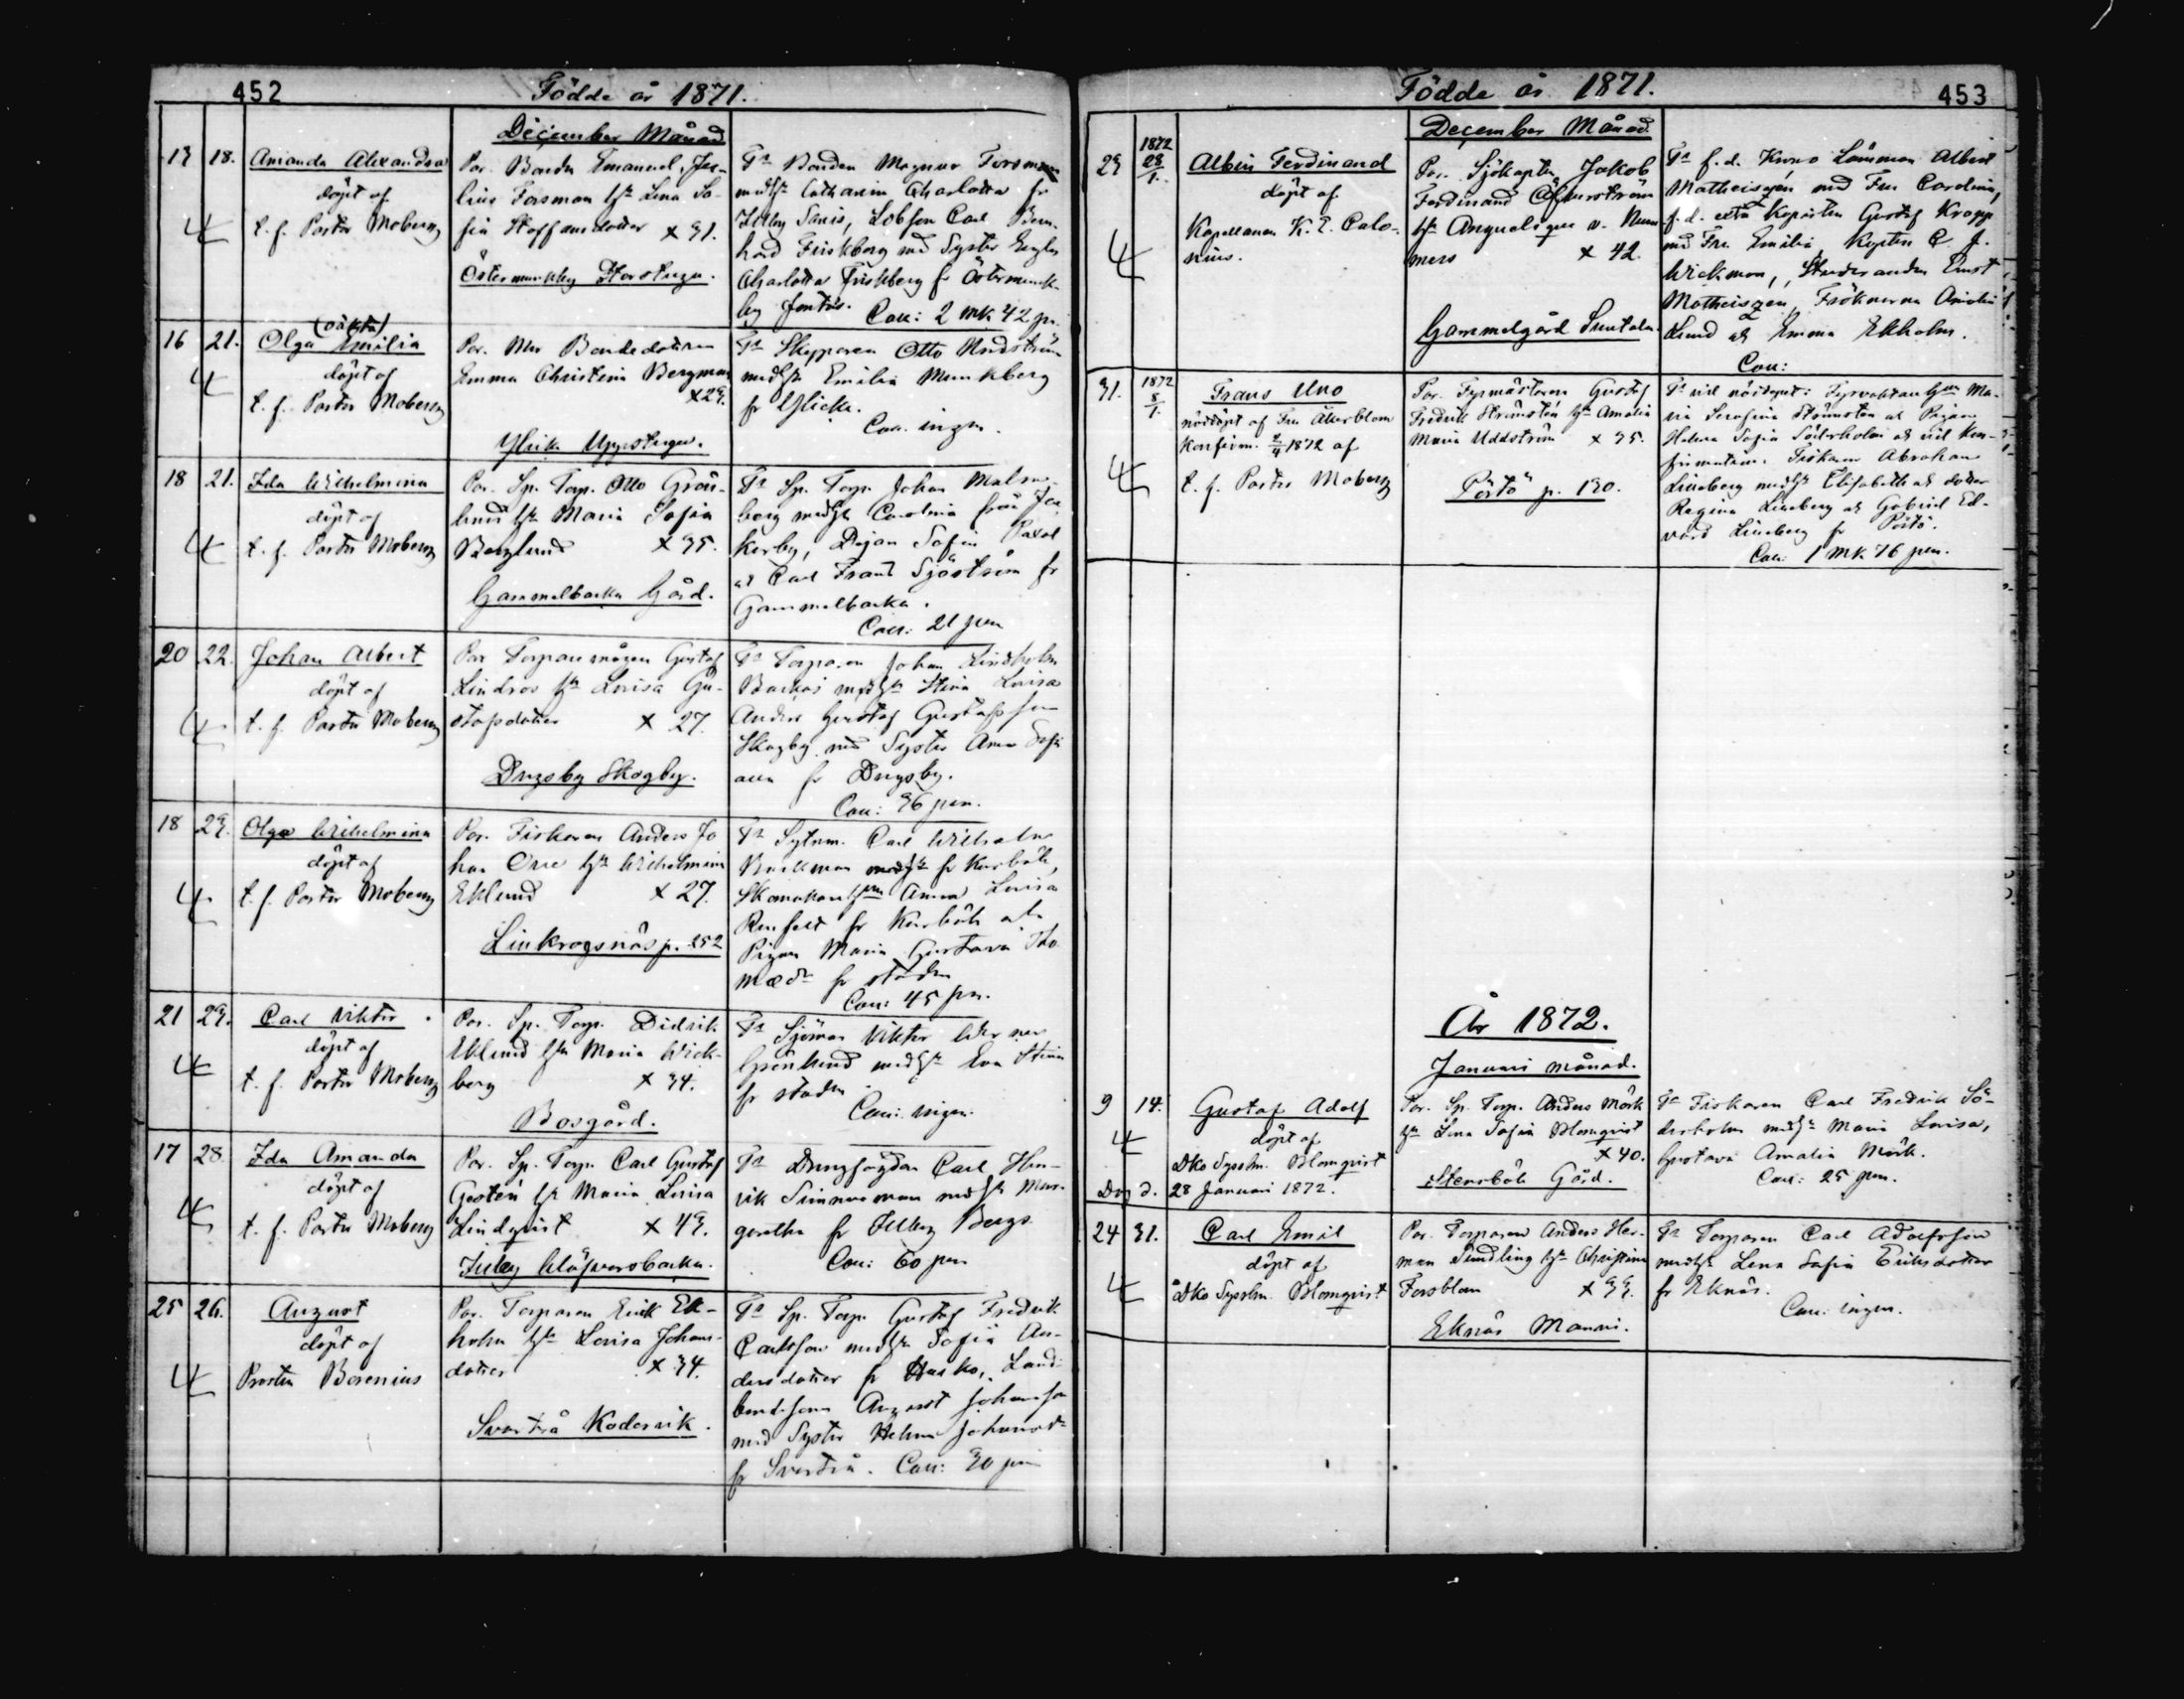 452
Födde år 1871.
December Månad
13 18. Amanda Alexandra
döpt af
t. f. Pastor Moberg
Par. Bonden Emanuel Ju-
lius Forsman h:u Lena So-
fia Staffansdotter x 31.
Östermunkby Storstuga.
F:r Bonden Magnus Forsman
med h:u Catharina Charlotta fr
Illby Sauis, Lösfson Carl Bern-
hard Friskberg med Syster
Charlotta Friskberg fr Östermunk-
by
Coll: 2 mk 42 pi.
16 21. (oäkta)
Olga Emilia
döpt af
t. f. Pastor Moberg
Par. Bondedottren
Emma Christina Bergman
x 29.
Ylicke Uppstugu.
F:r Skepparen Otto Nordström
med h:u Emilia Munkberg
fr Ylicke.
Coll. ingen.
18 21. Ida Wilhelmina
döpt af
t. f. Pastor Moberg
Par. Sp. Torp. Otto Grön-
lund h:u Maria Sofia
Berglund x 35.
Gammelbacka Gård.
F:r Sp. Torp. Johan Malm-
berg med h:u Carolina från Jac-
karby, Pigan Sofia
at Carl Frans Sjöström fr
Gammelbacka.
Coll: 21 pen
20 22. Johan Albert
döpt af
t. f. Pastor Moberg
Par Torparemågen Gustaf
Lindros h:u Lovisa Gu-
stafsdotter x 27.
Drägsby Skogby.
F:r Torparen Johan Lindholm
Backas med h:u Stina Lovisa
Anders Gustaf Gustafsson
Skogby med Syster Anna Sofia
alla fr Drägsby.
Coll: 36 pen.
18 23. Olga Wilhelmina
döpt af
t. f. Pastor Moberg
Par. Fiskaren Anders Jo
han Orre h:u Wilhelmina
Eklund x 27.
Linkrogsnäs p. 252
F:r Sytnm. Carl Wilhelm
Backman med h:u fr Kurböle,
Skomakarh:un Anna Lovisa
Renfelt fr Kurböle
Pigan Maria Gustava Tho
mæd:r fr staden
Coll: 45 pen.
21 23. Carl Viktor
döpt af
t. f. Pastor Moberg
Par. Sp. Torp. Didrik
Eklund h:u Maria Wick-
berg x 34.
Bosgård.
F:r Sjöman Viktor Werner
Grönlund med h:u Eva Stina
fr staden
Coll: ingen.
17 28. Ida Amanda
döpt af
t. f. Pastor Moberg
Par. Sp. Torp. Carl Gustaf
Gostén h:u Maria Lovisa
Lindqvist x 43.
F:r Drengfogden Carl Hen-
rik Simmerman med h:u Mar-
garetha fr Illby Bergs
Coll: 60 pen
25 26. August
döpt af
Prosten Borenius
Par. Torparen Erik Ek-
holm h:u Lovisa Johans-
dotter x 34.
Svartså Kodervik.
F:r Sp. Torp. Gustaf Fredrik
Carlsson med h:u Sofia An-
dersdotter fr Haiko, Land-
bondsonen August Johansson
med Syster Helena Johansd:r
fr Svartså. Coll: 30 pen
Födde år 1871.
453
December Månad.
29 1872 28/1. Albin Ferdinand
döpt af
Kapellanen K. E. Calo-
nius.
Par. Sjökapten Jakob
Ferdinand
h:u Angelique v. Num
mers x 42.
Gammelgård Suntala.
F:r f. d. Krono Länsman Albert
Matheiszén med Fru Carolina,
f. d. extra Kopisten Gustaf Kropp
med Fru Emilia, Kapten C. J.
Wickman, Studeranden Ernst
Matheiszen, Fröknarna Amalia
Lund och Emma Ekholm.
Coll:
31. 1872 8/1. Frans Uno
nöddöpt af Fru Åkerblom
Konfirm. 2/4 1872 af
t. f. Pastor Moberg
Par. Fyrmästaren Gustaf
Fredrik Strömsten h:u Amalia
Maria Uddström x 35.
Pörtö p. 130.
F:r vid nöddopet: Fyrvaktarh:un Ma-
ria Serafina Strömsten at Pigan
Helena Sofia Söderholm at vid Kon-
firmation: Fiskaren Abraham
Lineberg med h:u Elisabeth at dotter
Regina Lineberg at Gabriel Ed-
vard Lineberg fr Pörtö.
Coll: 1 mk 76 pen.
År 1872.
Januari månad.
9 14. Gustaf Adolf
döpt af
Dko Syssolm. Blomqvist
Dog d. 28 Januari 1872.
Par. Sp. Torp. Anders Mörk
h:u Lena Sofia Blomqvist
x 40.
Stensböle Gård.
F:r Fiskaren Carl Fredrik Sö-
derholm med h:u Maria Lovisa,
Gustava Amalia Mörk.
Coll: 25 pen.
24 31. Carl Emil
döpt af
Dko Sysslm. Blomqvist
Par. Torparen Anders Her-
man Sundling h:u Christina
Forsblom x 33.
Eknäs Manni.
F:r Torparen Carl Adolfsson
med h:u Lena Sofia Eriksdotter
fr Eknäs.
Coll. ingen.